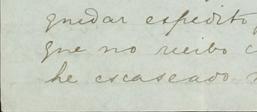 quedar espedito
que no recibo c
he escaseado